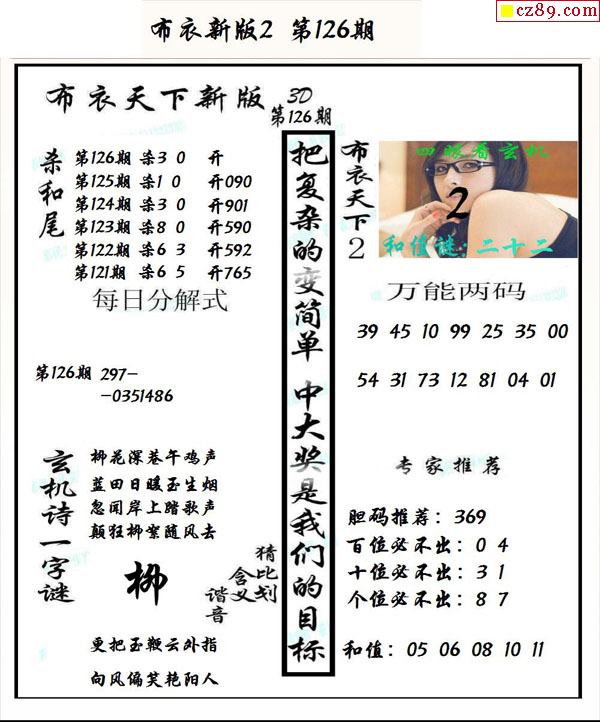 cz89.com
布衣新版2 第126期
布衣天下新版 3D
第126期
杀和尾
第126期 杀3 0 开
第125期 杀1 0 开090
第124期 杀3 0 开901
第123期 杀8 0 开590
第122期 杀6 3 开592
第121期 杀6 5 开765
每日分解式
第126期 297-
-0351486
玄机诗一字谜
柳花深巷午鸡声
蓝田日暖玉生烟
忽闻岸上踏歌声
颠狂柳絮随风去
柳
猜比划
含义
谐音
更把玉鞭云外指
向风偏笑艳阳人
把复杂的变简单 中大奖是我们的目标
布衣天下2
四眼看玄机
2
和值谜:二十二
万能两码
39 45 10 99 25 35 00
54 31 73 12 81 04 01
专家推荐
胆码推荐：369
百位必不出：0 4
十位必不出：3 1
个位必不出：8 7
和值：05 06 08 10 11